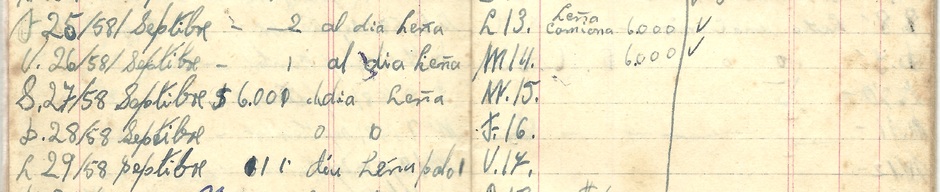 J. 25/58/ Septibre - 2 al dia Leña
V. 26/58/ Septibre - 1 al dia Leña
S. 27/58 Septibre $ 6.000 dia Leña
D. 28/58 Septibre 0 0
L 29/58 Septibre 1 dia Leña
L 13. Leña Camiona 6.000 ✓
M 14. 6.000 ✓
M. 15.
J. 16.
V. 17.